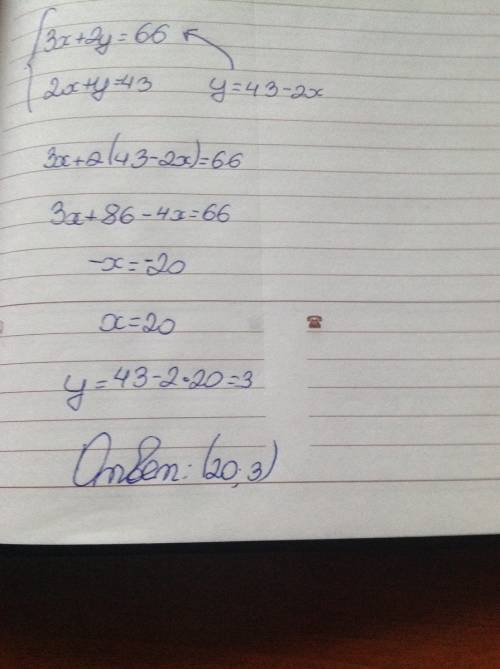 3x+2y=66
2x+y=43 y=43-2x
3x+2(43-2x)=66
3x+86-4x=66
-x=-20
x=20
y=43-2·20=3
Ответ: (20;3)